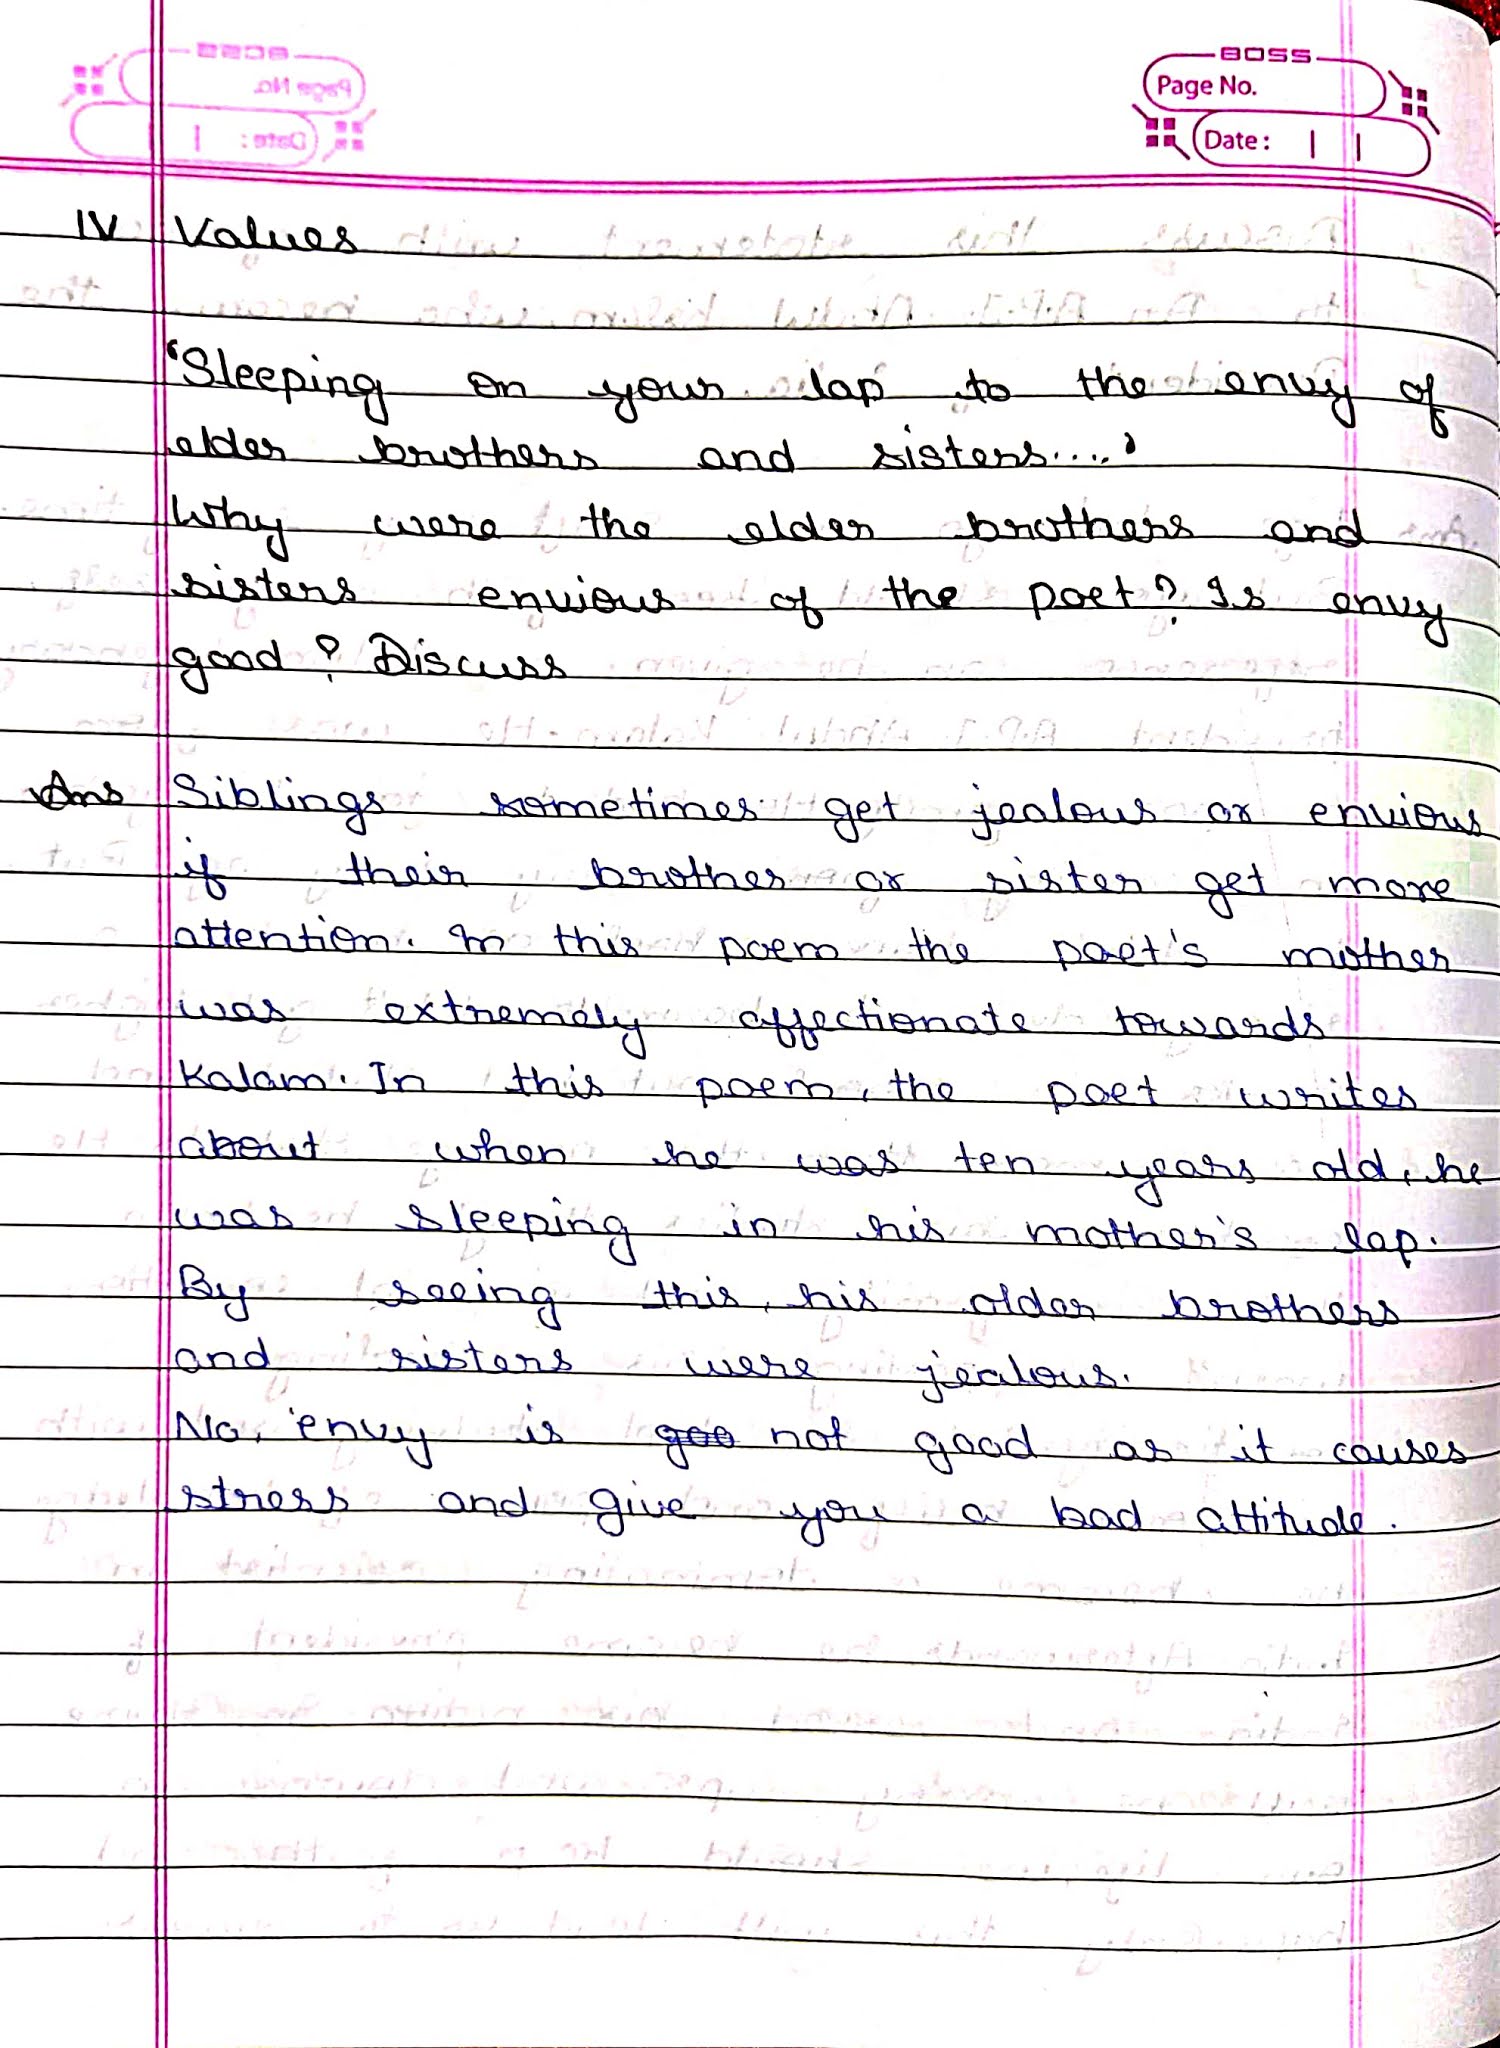 BOSS
Page No.
Date:
IV Values
'Sleeping on your lap to the envy of
elder brothers and sisters....'
Why were the elder brothers and
sisters envious of the poet? Is envy
good? Discuss
Ans Siblings sometimes get jealous or envious
if their brother or sister get more
attention. In this poem the poet's mother
was extremely affectionate towards
Kalam. In this poem, the poet writes
about when he was ten years old, he
was sleeping in his mother's lap.
By seeing this, his older brothers
and sisters were jealous.
No, envy is goo not good as it causes
stress and give you a bad attitude.